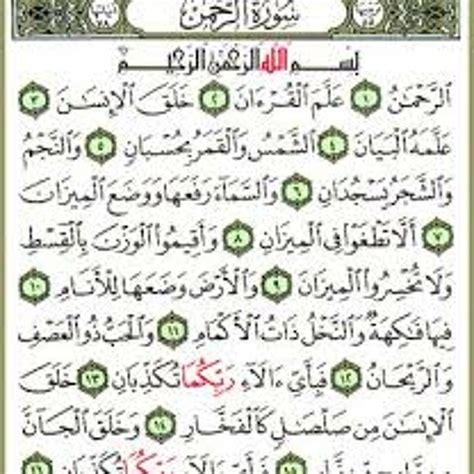 سُورَةُ الرَّحْمَٰن
بِسْمِ اللَّهِ الرَّحْمَٰنِ الرَّحِيمِ
الرَّحْمَٰنُ ١ عَلَّمَ الْقُرْءَانَ ٢ خَلَقَ الْإِنسَٰنَ ٣
عَلَّمَهُ الْبَيَانَ ٤ الشَّمْسُ وَالْقَمَرُ بِحُسْبَانٍ ٥ وَالنَّجْمُ
وَالشَّجَرُ يَسْجُدَانِ ٦ وَالسَّمَاءَ رَفَعَهَا وَوَضَعَ الْمِيزَانَ
٧ أَلَّا تَطْغَوْا فِي الْمِيزَانِ ٨ وَأَقِيمُوا الْوَزْنَ بِالْقِسْطِ
وَلَا تُخْسِرُوا الْمِيزَانَ ٩ وَالْأَرْضَ وَضَعَهَا لِلْأَنَامِ ١٠
فِيهَا فَٰكِهَةٌ وَالنَّخْلُ ذَاتُ الْأَكْمَامِ ١١ وَالْحَبُّ ذُو الْعَصْفِ
وَالرَّيْحَانُ ١٢ فَبِأَيِّ ءَالَاءِ رَبِّكُمَا تُكَذِّبَانِ ١٣ خَلَقَ
الْإِنسَٰنَ مِن صَلْصَٰلٍ كَالْفَخَّارِ ١٤ وَخَلَقَ الْجَانَّ
مِن مَّارِجٍ مِّن نَّارٍ ١٥ فَبِأَيِّ ءَالَاءِ رَبِّكُمَا تُكَذِّبَانِ ١٦